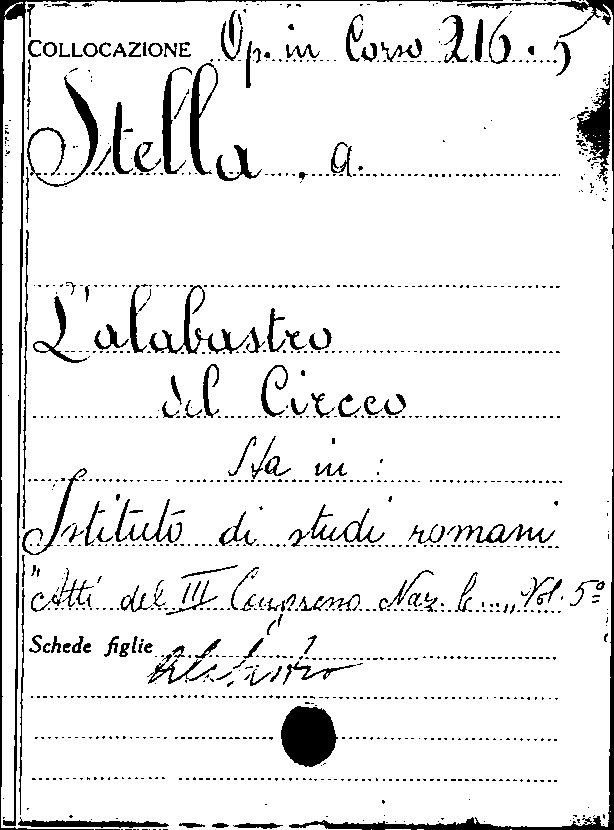 COLLOCAZIONE Op. in Corso 216.5
Stella, a.
L'alabastro
del Circeo
Sta in:
Istituto di studi romani
"Atti del III Congresso Naz. le...," Vol. 5º
Schede figlie Alabastro